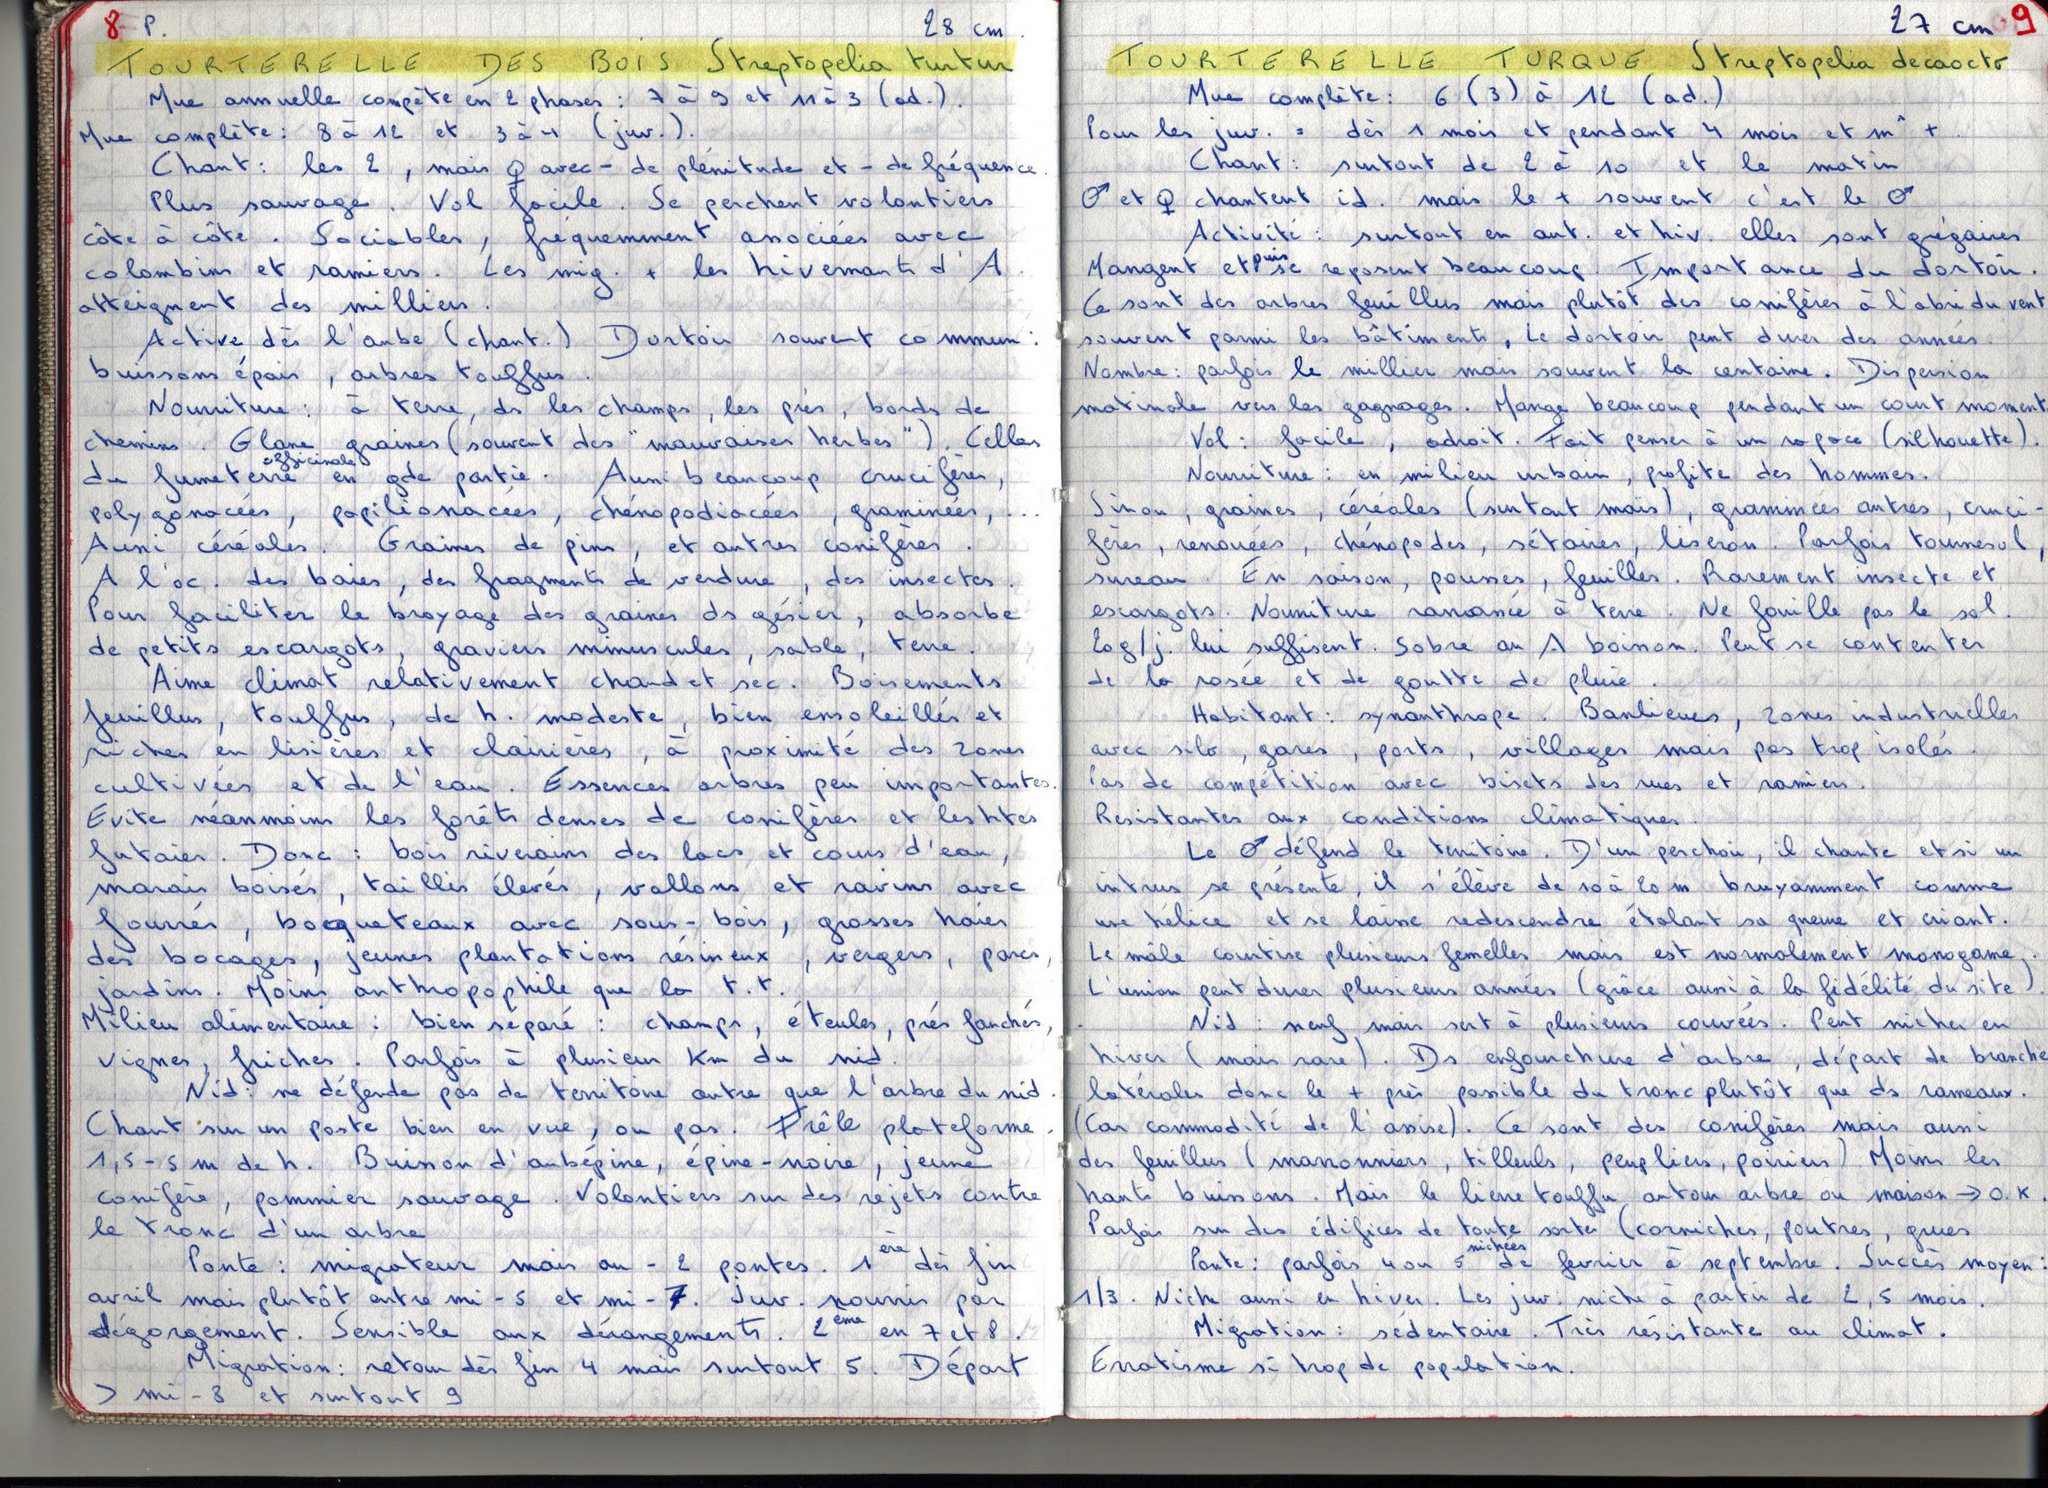 8 P. 28 cm.
TOURTERELLE DES BOIS Streptopelia turtur
Mue annuelle compète en 2 phases : 7 à 9 et 11 à 3 (ad.).
Mue complète : 8 à 12 et 3 à 4 (juv.).
Chant : les 2, mais ♀ avec - de plénitude et - de fréquence.
Plus sauvage. Vol facile. Se perchent volontiers
côte à côte. Sociables, fréquemment associées avec
colombins et ramiers. Les mig. + les hivernants d'A.
atteignent des milliers.
Active dès l'aube (chant.) Dortoir souvent commun :
buissons épais, arbres touffus.
Nourriture : à terre, ds les champs, les prés, bords de
chemins. Glane graines (souvent des "mauvaises herbes"). Celles
du fumeterre officinale en gde partie. Aussi beaucoup crucifères,
polygonacées, papilionacées, chénopodiacées, graminées, ...
Aussi céréales. Graines de pins, et autres conifères.
A l'oc. des baies, des fragments de verdure, des insectes.
Pour faciliter le broyage des graines ds gésier, absorbe
de petits escargots, graviers minuscules, sable, terre.
Aime climat relativement chaud et sec. Boisements
feuillus, touffus, de h. modeste, bien ensoleillés et
riches en lisières et clairières, à proximité des zones
cultivées et de l'eau. Essences arbres peu importantes.
Evite néanmoins les forêts denses de conifères et les htes
futaies. Donc : bois riverains des lacs et cours d'eau,
marais boisés, taillis élevés, vallons et ravins avec
fourrés, bocqueteaux avec sous-bois, grosses haies
des bocages, jeunes plantations résineux, vergers, parcs,
jardins. Moins anthropophile que la T.T.
Milieu alimentaire : bien séparé : champs, éteules, prés fauchés,
vignes, friches. Parfois à plusieur km du nid.
Nid : ne défende pas de territoire autre que l'arbre du nid.
Chant sur un poste bien en vue, ou pas. Frêle plateforme.
1,5-5 m de h. Buisson d'aubépine, épine-noire, jeune
conifère, pommier sauvage. Volontiers sur des rejets contre
le tronc d'un arbre
Ponte : migrateur mais au - 2 pontes. 1ère dès fin
avril mais plutôt entre mi-5 et mi-7. Juv. nourris par
dégorgement. Sensible aux dérangements. 2ème en 7 et 8.
Migration : retour dès fin 4 mais surtout 5. Départ
> mi-8 et surtout 9
27 cm 9
TOURTERELLE TURQUE Streptopelia decaocto
Mue complète : 6 (3) à 12 (ad.)
Pour les juv. = dès 1 mois et pendant 4 mois et m^ +.
Chant : surtout de 2 à 10 et le matin
♂ et ♀ chantent id. mais le + souvent c'est le ♂
Activité : surtout en aut. et hiv. elles sont grégaires
Mangent et puis se reposent beaucoup. Importance du dortoir.
Ce sont des arbres feuillus mais plutôt des conifères à l'abri du vent
souvent parmi les bâtiments, Le dortoir peut durer des années.
Nombre : parfois le millier mais souvent la centaine. Dispersion
matinale vers les gagnages. Mange beaucoup pendant un court moment.
Vol : facile, adroit. Fait penser à un rapace (silhouette).
Nourriture : en milieu urbain, profite des hommes.
Sinon, graines, céréales (surtout maïs), graminées autres, cruci-
fères, renouées, chénopodes, sétaires, liseron. Parfois tournesol,
sureau. En saison, pousses, feuilles. Rarement insecte et
escargots. Nourriture ramassée à terre. Ne fouille pas le sol.
20g/j. lui suffisent. Sobre au A boisson. Peut se contenter
de la rosée et de goutte de pluie.
Habitant : synanthrope. Banlieues, zones industrielles
avec silo, gares, ports, villages mais pas trop isolés.
Pas de compétition avec bisets des rues et ramiers.
Résistantes aux conditions climatiques.
Le ♂ défend le territoire. D'un perchoir, il chante et si un
intrus se présente, il s'élève de 10 à 20 m bruyamment comme
une hélice et se laisse redescendre étalant sa queue et criant.
Le mâle courtise plusieurs femelles mais est normalement monogame.
L'union peut durer plusieurs années (grâce aussi à la fidélité du site).
Nid : neuf mais sert à plusieurs couvées. Peut nicher en
hiver (mais rare). Ds enfourchure d'arbre, départ de branche
latérales donc le + près possible du tronc plutôt que ds rameaux.
(Car commodité de l'assise). Ce sont des conifères mais aussi
des feuillus (marronniers, tilleuls, peupliers, poiriers) Moins les
hauts buissons. Mais le lierre touffu autour arbre ou maison → O.K.
Parfois sur des édifices de toute sorte (corniches, poutres, grues
Ponte : parfois 4 ou 5 nichées de fevrier à septembre. Succès moyen :
1/3. Niche aussi en hiver. Les juv. niche à partir de 2,5 mois.
Migration : sédentaire. Très résistante au climat.
Erratisme si trop de population.